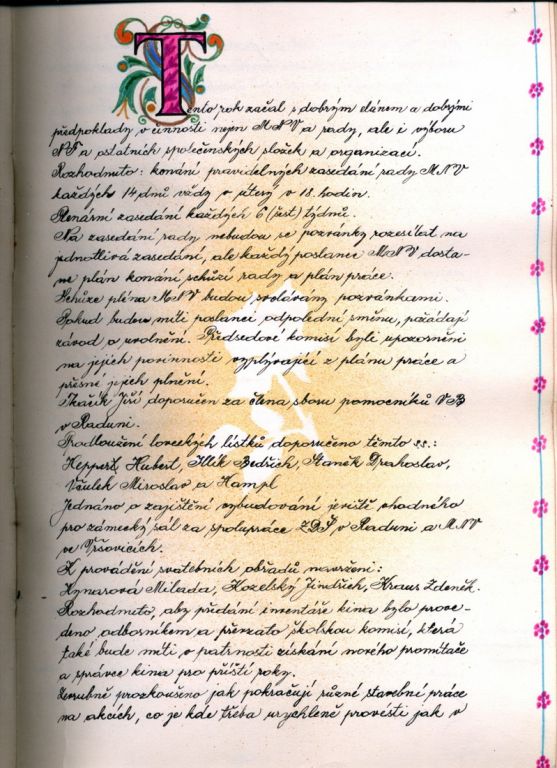 Tento rok začal s dobrým elánem a dobrými
předpoklady v činnosti nejen MNV a rady, ale i výboru
NF a ostatních společenských složek a organizací.
Rozhodnuto: konání pravidelných zasedání rady MNV
každých 14 dnů vždy v úterý v 18. hodin.
Plenární zasedání každých 6 (šest) týdnů.
Na zasedání rady nebudou se pozvánky rozesílat na
jednotlivá zasedání, ale každý poslanec MNV dosta-
ne plán konání schůzí rady a plán práce.
Schůze pléna MNV budou svolávány pozvánkami.
Pokud budou míti poslanci odpolední směnu, požádají
závod o uvolnění. Předsedové komisí byli upozorněni
na jejich povinnosti vyplývající z plánu práce a
přesné jejich plnění.
Tkačík Jiří doporučen za člena sboru pomocníků VB
v Raduni.
Prodloužení loveckých lístků doporučeno těmto ss.:
Heppert Hubert, Illík Bedřich, Staněk Drahoslav,
Všulek Miroslav a Hampl
Jednáno o zajištění vybudování jeviště vhodného
pro zámecký sál za spolupráce ZDŠ v Raduni a MNV
ve Vršovicích.
K provádění svatebních obřadů navrženi:
Kynasová Milada, Kozelský Jindřich, Kraus Zdeněk.
Rozhodnuto, aby předání inventáře kina bylo prove-
deno odborníkem a převzato školskou komisí, která
také bude míti v patrnosti získání nového promítače
a správce kina pro příští roky.
Zevrubně prozkoušeno jak pokračují různé stavební práce
na akcích, co je kde třeba urychleně provésti jak v